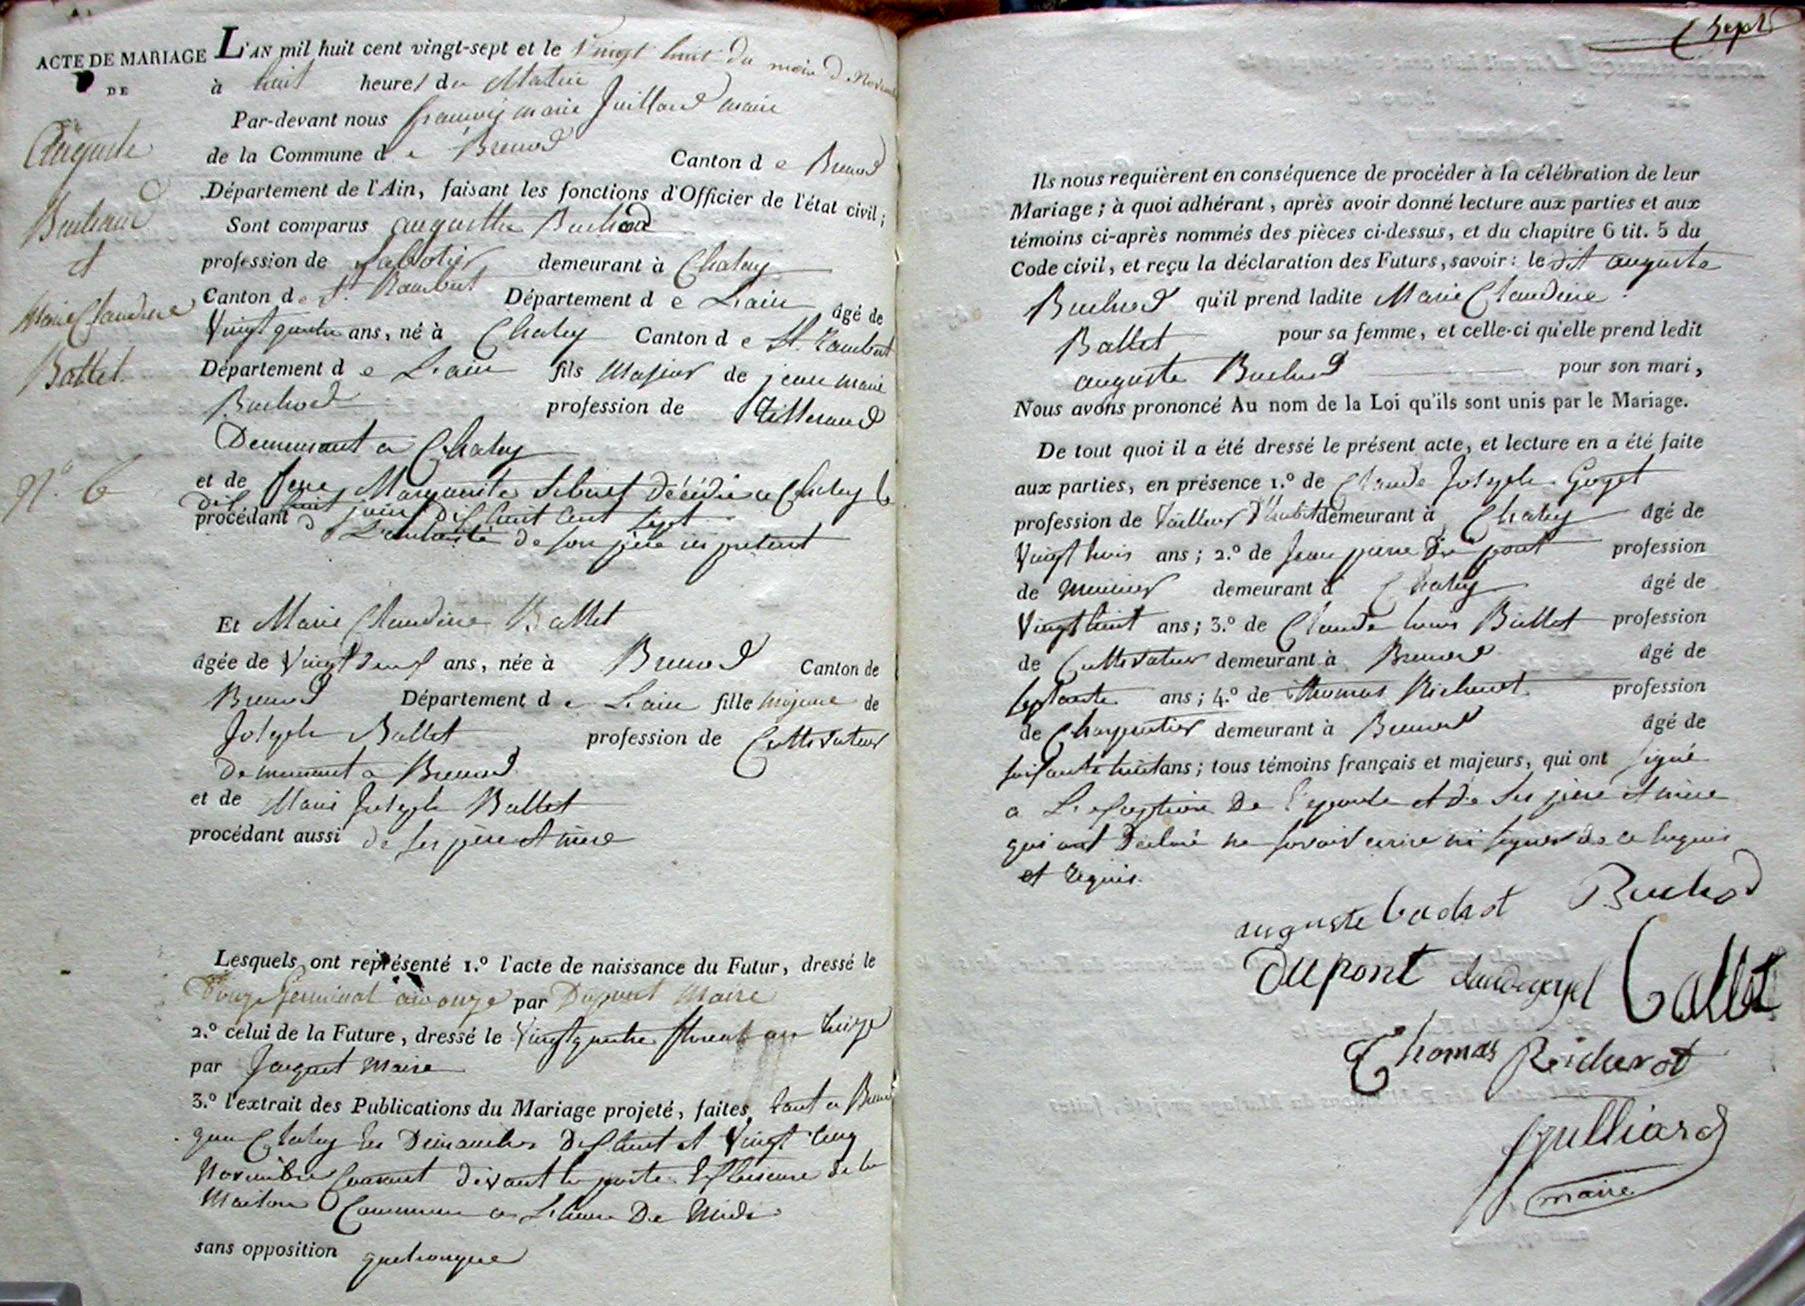 ACTE DE MARIAGE
DE
Auguste
Buchod
et
Marie Claudine
Ballet
N.° 6
L'AN mil huit cent vingt-sept et le Vingt huit du mois de Novembre
à huit heures du Matin
Par-devant nous françois marie Juillard maire
de la Commune de Brenod Canton de Brenod
Département de l'Ain, faisant les fonctions d'Officier de l'état civil;
Sont comparus augusthe Buchod
profession de Sabotier demeurant à Chaley
Canton de St. Rambert Département de L'ain âgé de
Vingt quatre ans, né à Chaley Canton de St. Rambert
Département de L'ain fils Majeur de jean marie
Buchod profession de Tisserand
Demeurant a Chaley
et de feue Marguerite Décédée a Chaley le
dix huit juin dix huit cent sept
procédant de L'autorité de son père ici présent
Et Marie Claudine Ballet
âgée de Vingt deux ans, née à Brenod Canton de
Brenod Département de L'ain fille majeure de
Joseph Ballet profession de Cultivateur
Demeurant a Brenod
et de Marie Joseph Ballet
procédant aussi de ses père et mère
Lesquels ont représenté 1.° l'acte de naissance du Futur, dressé le
germinal an onze par Dupont Maire
2.° celui de la Future, dressé le Vingt quatre an treize
par Jacquet Maire
3.° l'extrait des Publications du Mariage projeté, faites, tant a Brenod
qua Chaley les Dimanches Dix huit et Vingt cinq
Novembre Courant devant la porte Exterieure de la
Maison Commune a L'heure De Midi
sans opposition quelconque
Sept
Ils nous requièrent en conséquence de procéder à la célébration de leur
Mariage; à quoi adhérant, après avoir donné lecture aux parties et aux
témoins ci-après nommés des pièces ci-dessus, et du chapitre 6 tit. 5 du
Code civil, et reçu la déclaration des Futurs, savoir: le dit auguste
Buchod qu'il prend ladite Marie Claudine
Ballet pour sa femme, et celle-ci qu'elle prend ledit
auguste Buchod pour son mari,
Nous avons prononcé Au nom de la Loi qu'ils sont unis par le Mariage.
De tout quoi il a été dressé le présent acte, et lecture en a été faite
aux parties, en présence 1.° de Claude Joseph Goyet
profession de Tailleur D'habit demeurant à Chaley âgé de
Vingt trois ans; 2.° de Jean pierre Dupont profession
de Meunier demeurant à Chaley âgé de
Vingt huit ans; 3.° de Claude Louis Ballet profession
de Cultivateur demeurant à Brenod âgé de
septante ans; 4.° de thomas Richerot profession
de Charpentier demeurant à Brenod âgé de
soixante huit ans; tous témoins français et majeurs, qui ont signé
a L'exception De l'epouse et de ses père et mère
qui ont Déclaré ne savoir ecrire ni signer de ce Enquis
et Requis.
auguste buchot Buchod
Dupont claude goyet Ballet
Thomas Richerot
Juilliard
maire